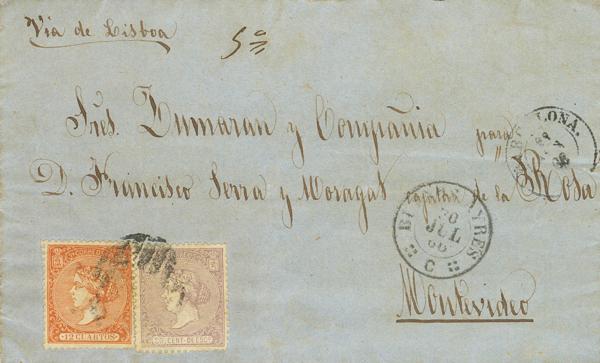 Via de Lisboa
Sres. Zumaran y Compañia para
D. Francisco Serra y Moragas de la Rosa
Montevideo
BARCELONA.
BUENOS AYRES
JUL
66
C
12 CUARTOS
20 CENT. DE ESCO